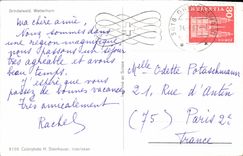 Grindelwald. Wetterhorn
ma chère amie,
Nous sommes dans
une région magnifique,
nous passons un séjour
très agréable et avons
beau temps.
J'espère que vous
passez de bonnes vacances,
Très amicalement
Rachel
HELVETIA
30
Mlle Odette Potaschmann
21, Rue d'Antin
(75) Paris 2e
France